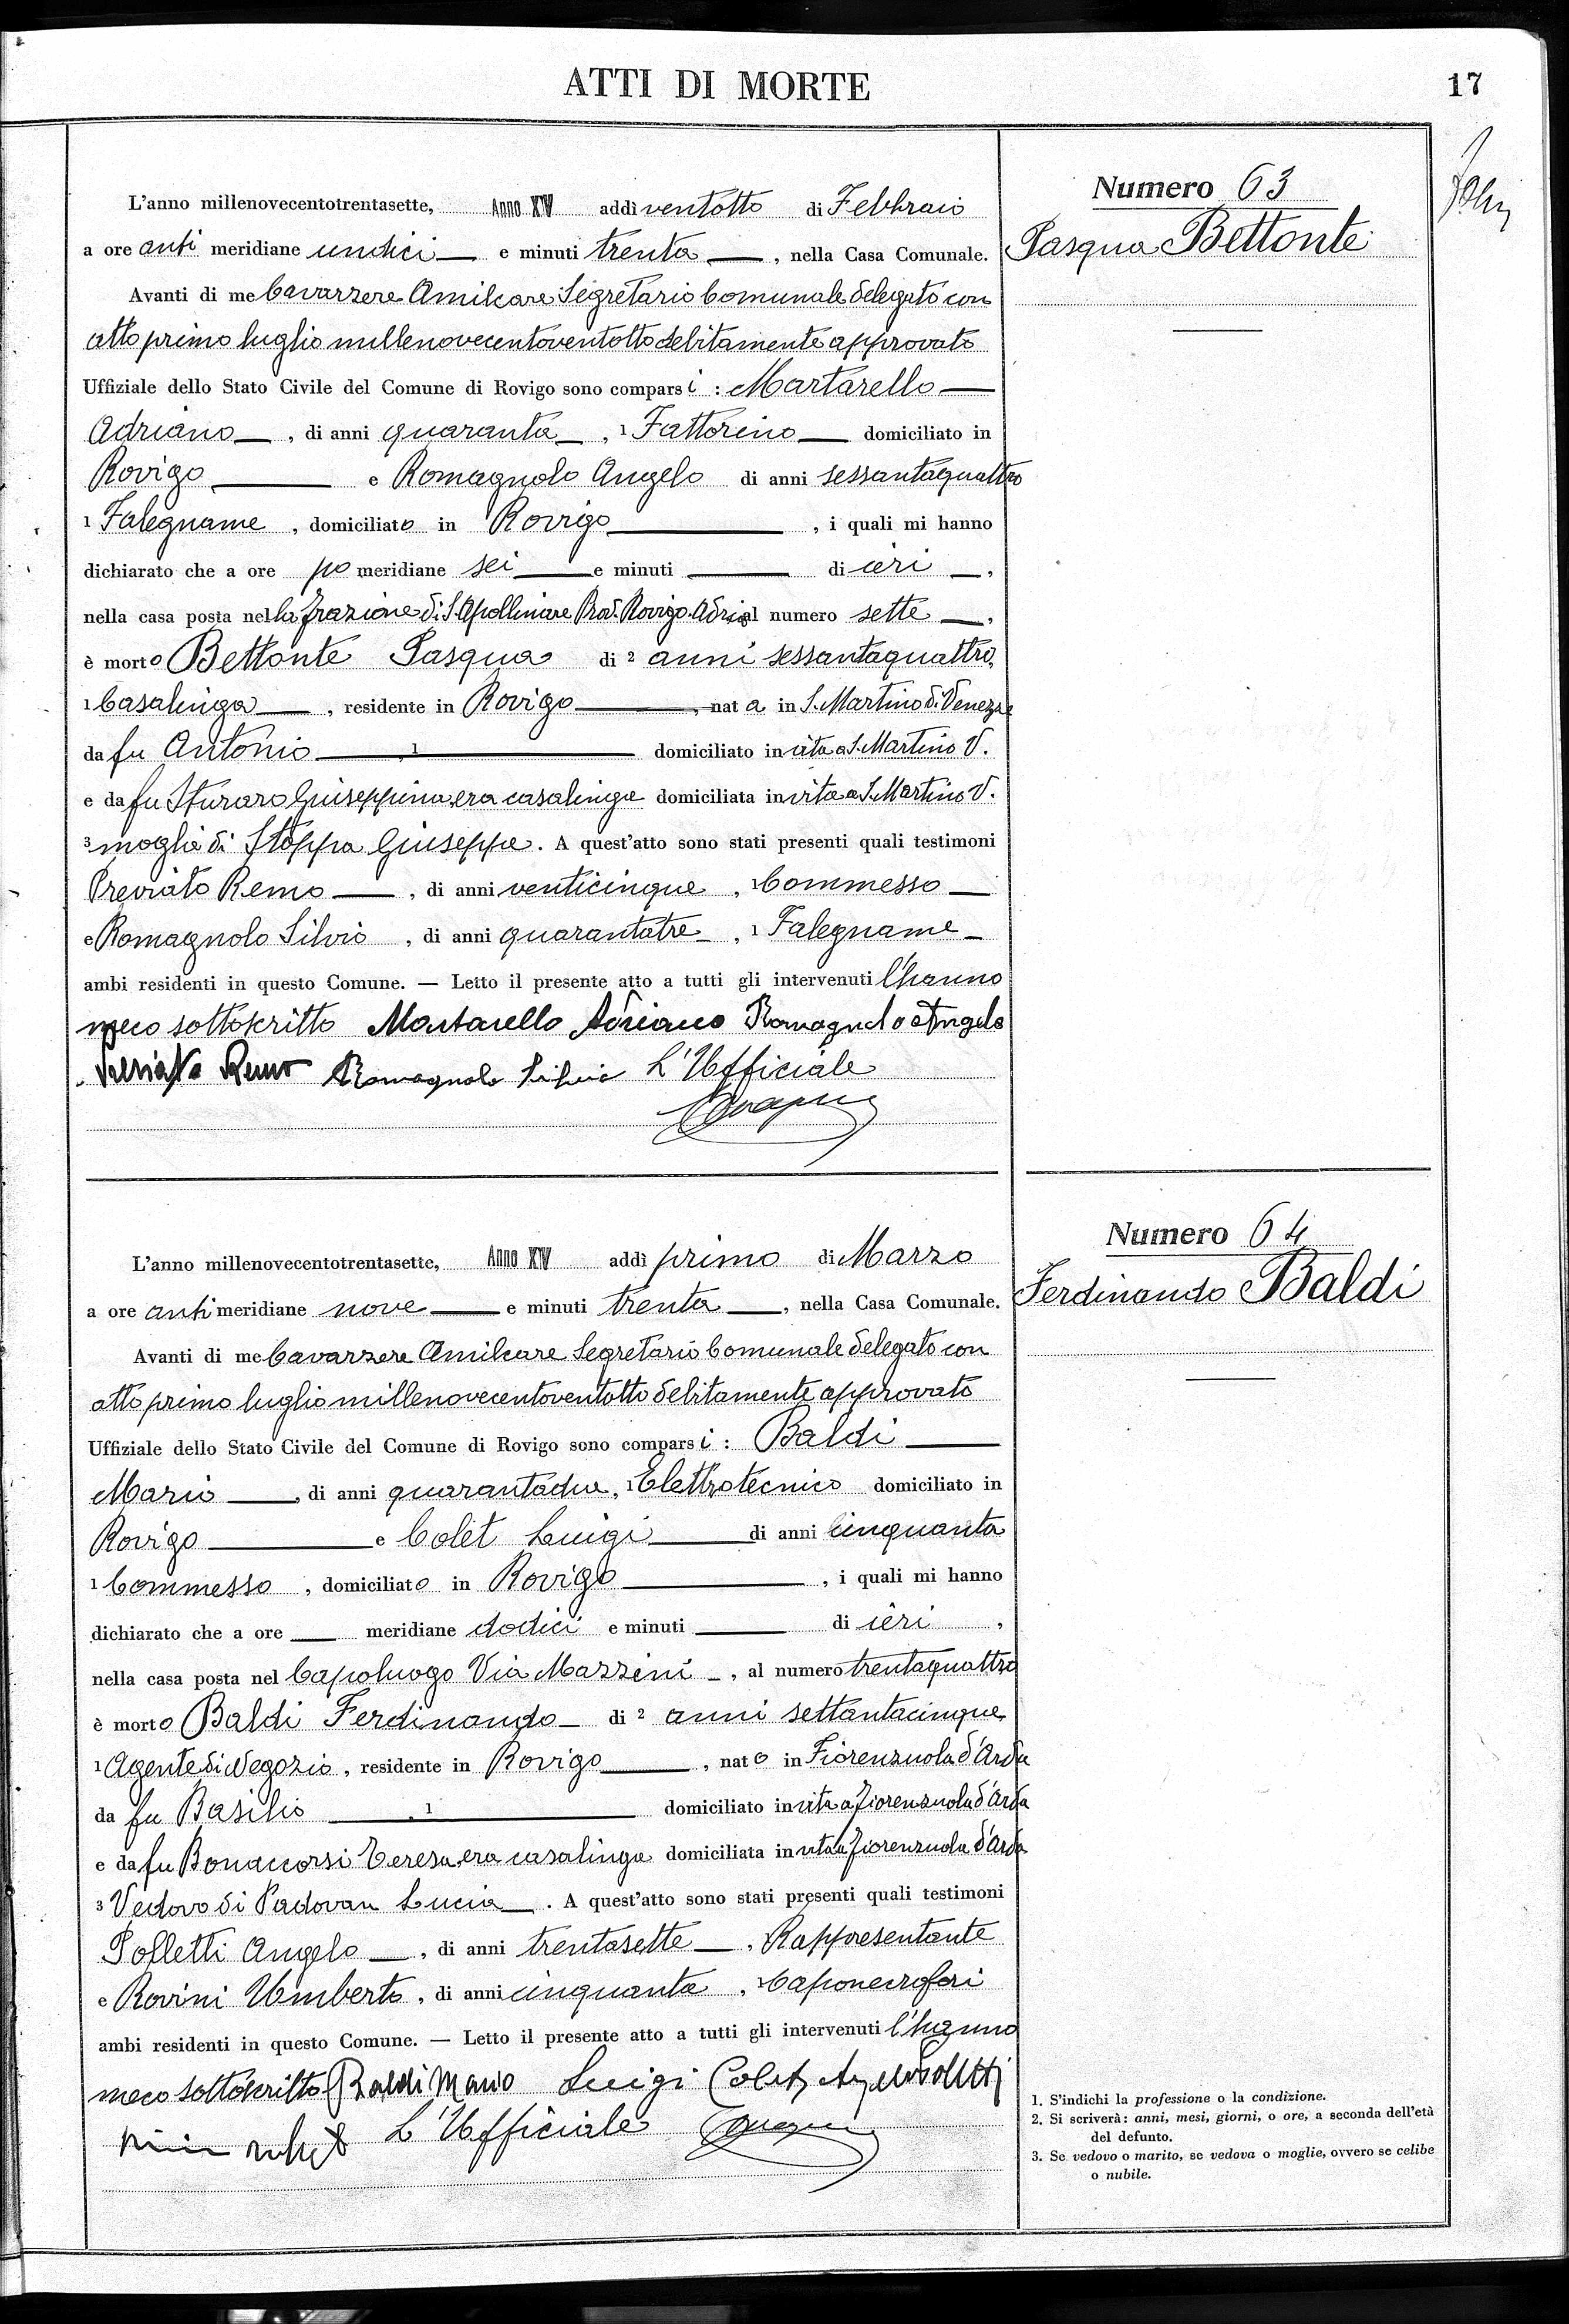 ATTI DI MORTE
17
Numero 63
Pasqua Bettonte
L'anno millenovecentotrentasette, Anno XV addì ventotto di Febbraio
a ore anti meridiane undici e minuti trenta, nella Casa Comunale.
Avanti di me Cavarzere Amilcare Segretario Comunale delegato con
atto primo luglio millenovecentoventotto debitamente approvato
Uffiziale dello Stato Civile del Comune di Rovigo sono comparsi : Martarello
Adriano, di anni quaranta, 1 Fattorino domiciliato in
Rovigo e Romagnolo Angelo di anni sessantaquattro
1 Falegname, domiciliato in Rovigo, i quali mi hanno
dichiarato che a ore po meridiane sei e minuti di ieri,
nella casa posta nella frazione di S. Apollinare Prov. Rovigo. Adria al numero sette,
è morto Bettonte Pasqua di 2 anni sessantaquattro,
1 Casalinga, residente in Rovigo, nata in S. Martino di Venezze
da fu Antonio, 1 domiciliato in vita a S. Martino V.
e da fu Sturaro Giuseppina, era casalinga domiciliata in vita a S. Martino V.
3 moglie di Stoppa Giuseppe. A quest'atto sono stati presenti quali testimoni
Previato Remo, di anni venticinque, 1 Commesso
e Romagnolo Silvio, di anni quarantatre, 1 Falegname
ambi residenti in questo Comune. — Letto il presente atto a tutti gli intervenuti l'hanno
meco sottoscritto Martarello Adriano Romagnolo Angelo
Previato Remo Romagnolo Silvio L'Ufficiale
Numero 64
Ferdinando Baldi
L'anno millenovecentotrentasette, Anno XV addì primo di Marzo
a ore anti meridiane nove e minuti trenta, nella Casa Comunale.
Avanti di me Cavarzere Amilcare Segretario Comunale delegato con
atto primo luglio millenovecentoventotto debitamente approvato
Uffiziale dello Stato Civile del Comune di Rovigo sono comparsi : Baldi
Mario, di anni quarantadue, 1 Elettrotecnico domiciliato in
Rovigo e Colet Luigi di anni cinquanta
1 Commesso, domiciliato in Rovigo, i quali mi hanno
dichiarato che a ore meridiane dodici e minuti di ieri,
nella casa posta nel Capoluogo Via Mazzini, al numero trentaquattro
è morto Baldi Ferdinando di 2 anni settantacinque
1 Agente di Negozio, residente in Rovigo, nato in Fiorenzuola d'Arda
da fu Basilio, 1 domiciliato in vita a Fiorenzuola d'Arda
e da fu Bonacorsi Teresa, era casalinga domiciliata in vita a Fiorenzuola d'Arda
3 Vedovo di Padovan Lucia. A quest'atto sono stati presenti quali testimoni
Polletti Angelo, di anni trentasette, Rappresentante
e Rovini Umberto, di anni cinquanta, 1 Caponecrofori
ambi residenti in questo Comune. — Letto il presente atto a tutti gli intervenuti l'hanno
meco sottoscritto Baldi Mario Luigi Colet Angelo Polletti
L'Ufficiale
1. S'indichi la professione o la condizione.
2. Si scriverà: anni, mesi, giorni, o ore, a seconda dell'età
del defunto.
3. Se vedovo o marito, se vedova o moglie, ovvero se celibe
o nubile.